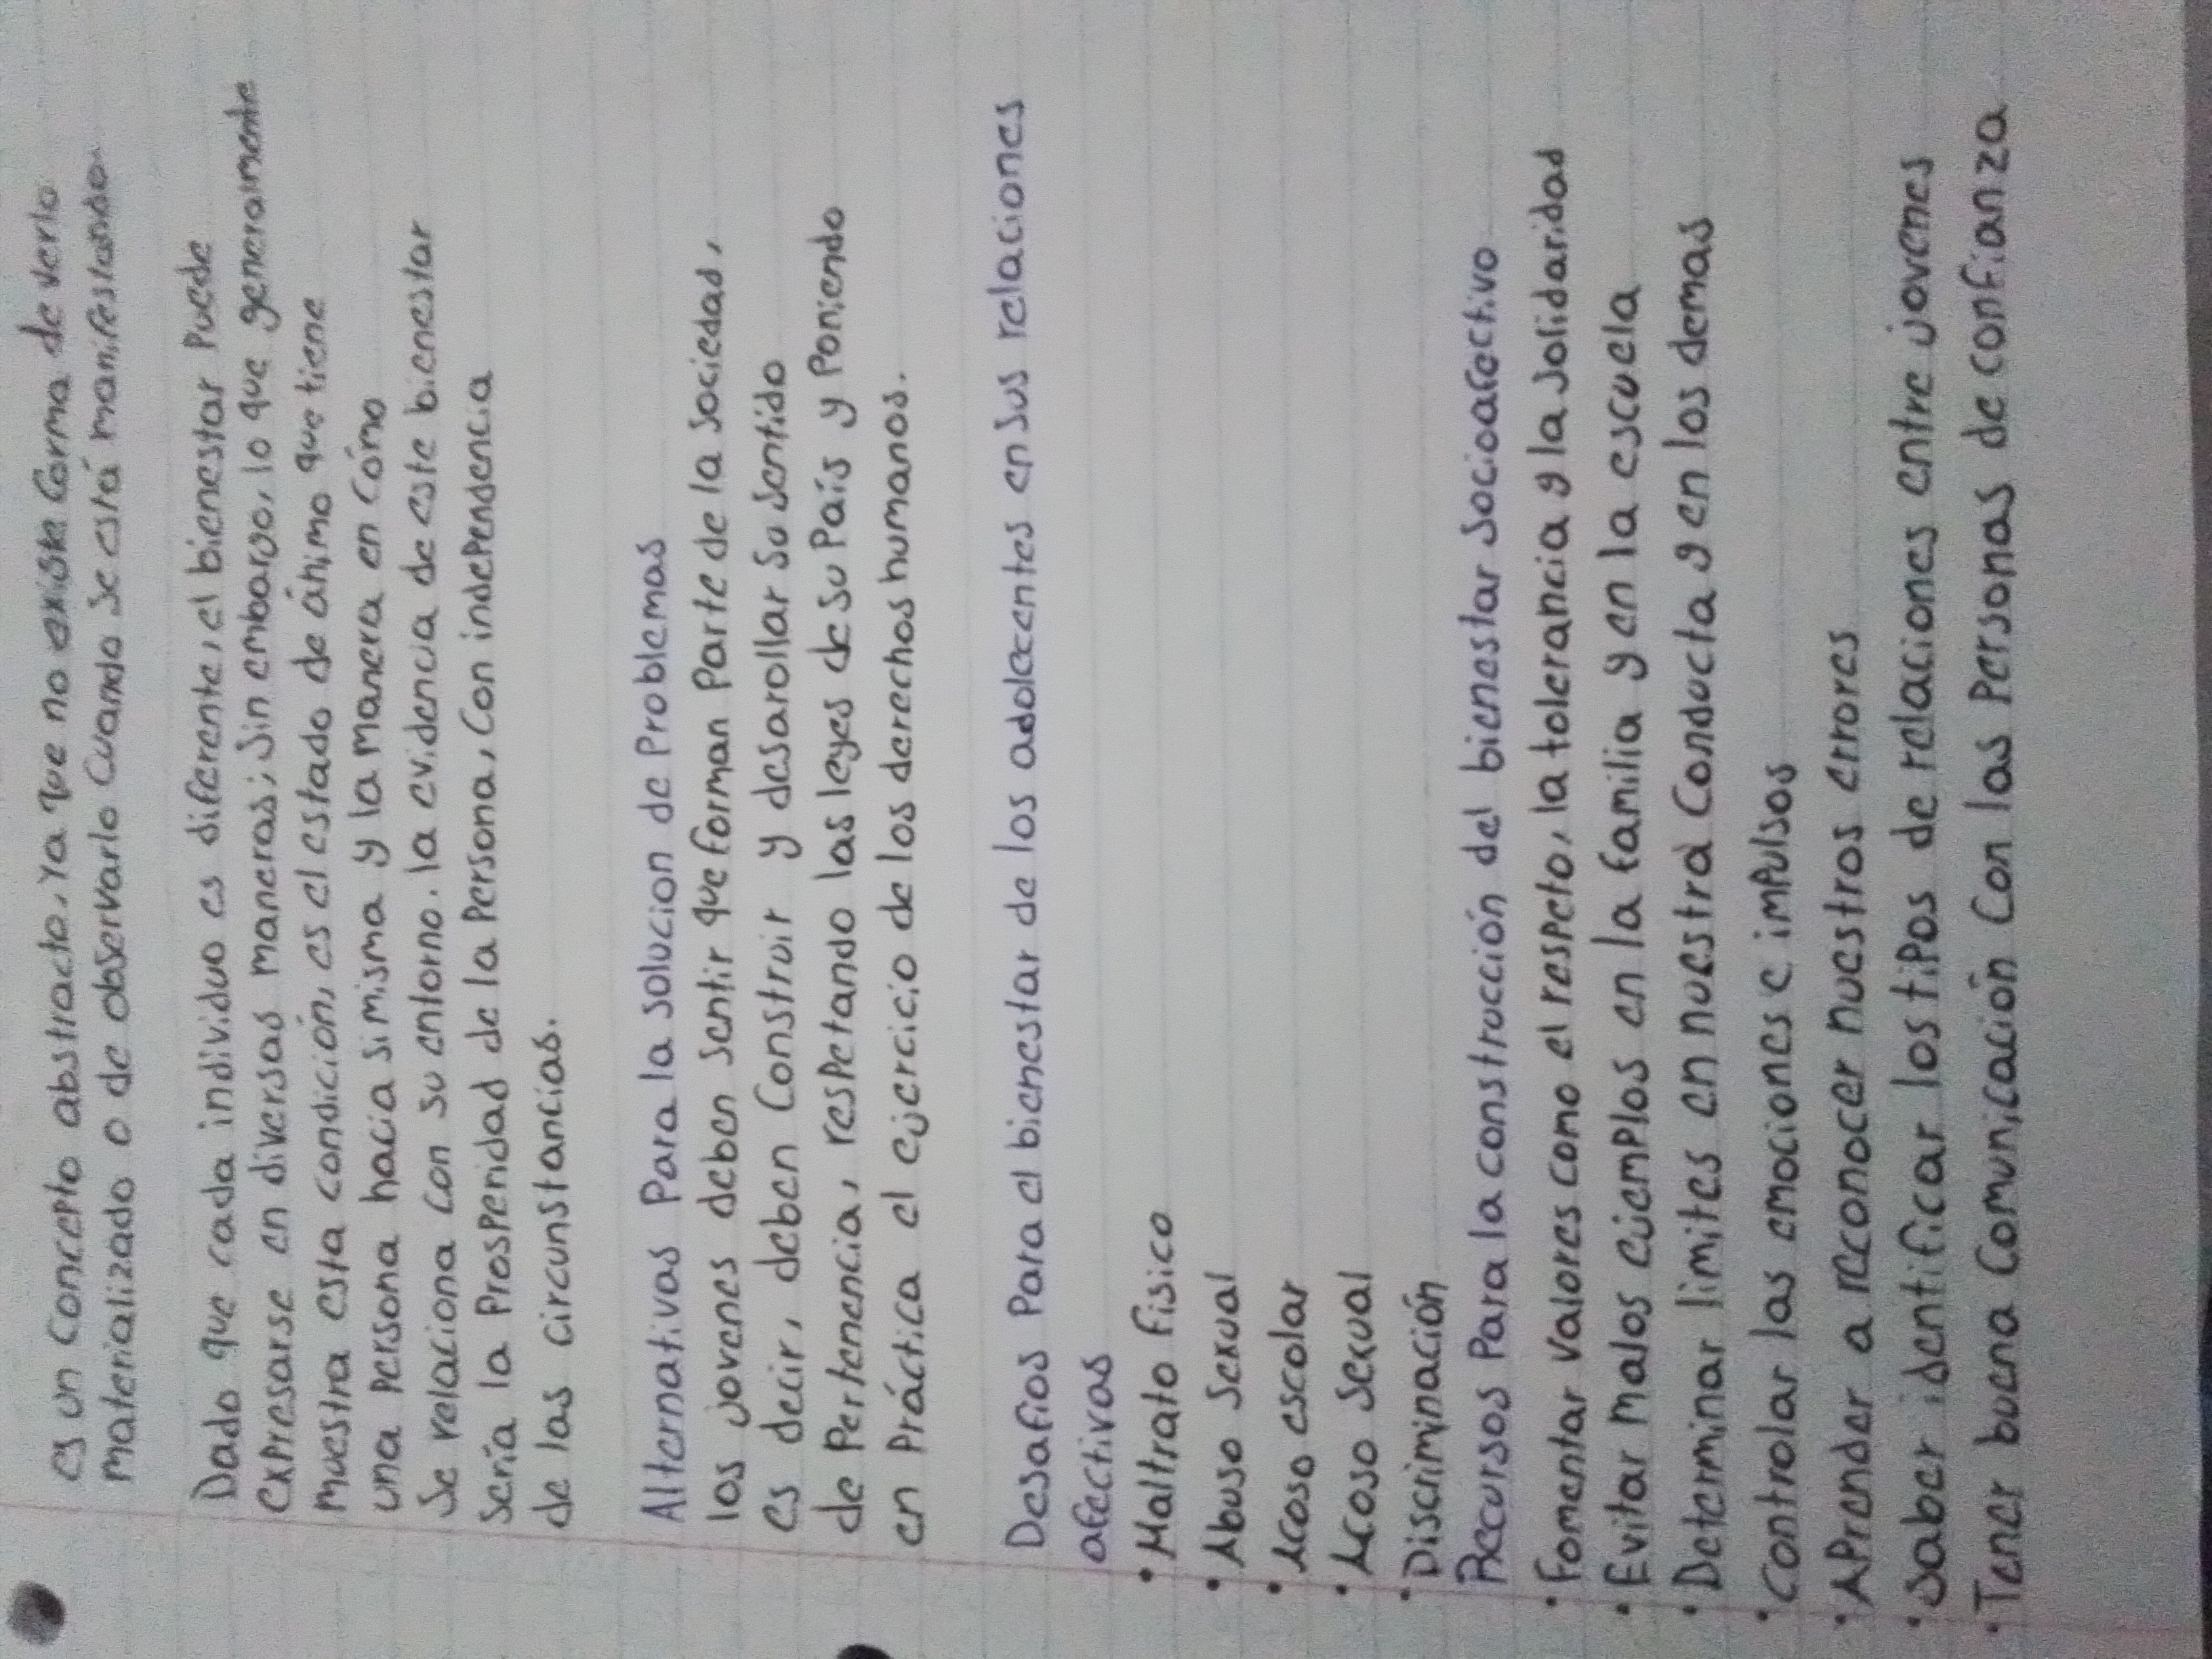 es un concepto abstracto, Ya que no existe forma de verlo
materializado o de observarlo Cuando se está manifestando
Dado que cada individuo es diferente, el bienestar Puede
expresarse en diversas maneras; Sin embargo, lo que generalmente
muestra esta condición, es el estado de ánimo que tiene
una persona hacia si misma y la manera en Cómo
Se relaciona con su entorno. la evidencia de este bienestar
sería la Prosperidad de la Persona, Con independencia
de las circunstancias.
Alternativas Para la solucion de Problemas
los jovenes deben sentir que forman Parte de la sociedad,
es decir, deben Construir y desarollar su sentido
de Pertenencia, respetando las leyes de su País y Poniendo
en Práctica el ejercicio de los derechos humanos.
Desafios Para el bienestar de los adolecentes en sus relaciones
afectivas
• Maltrato fisico
• Abuso sexual
• Acoso escolar
• Acoso sexual
• Discriminación
Recursos Para la construcción del bienestar socioafectivo
• Fomentar valores como el respeto, la tolerancia y la solidaridad
• Evitar malos ejemplos en la familia y en la escuela
• Determinar limites en nuestra Conducta y en los demas
• Controlar las emociones e impulsos
• APrender a reconocer nuestros errores
• Saber identificar los tipos de relaciones entre jovenes
• Tener buena Comunicación Con las Personas de confianza